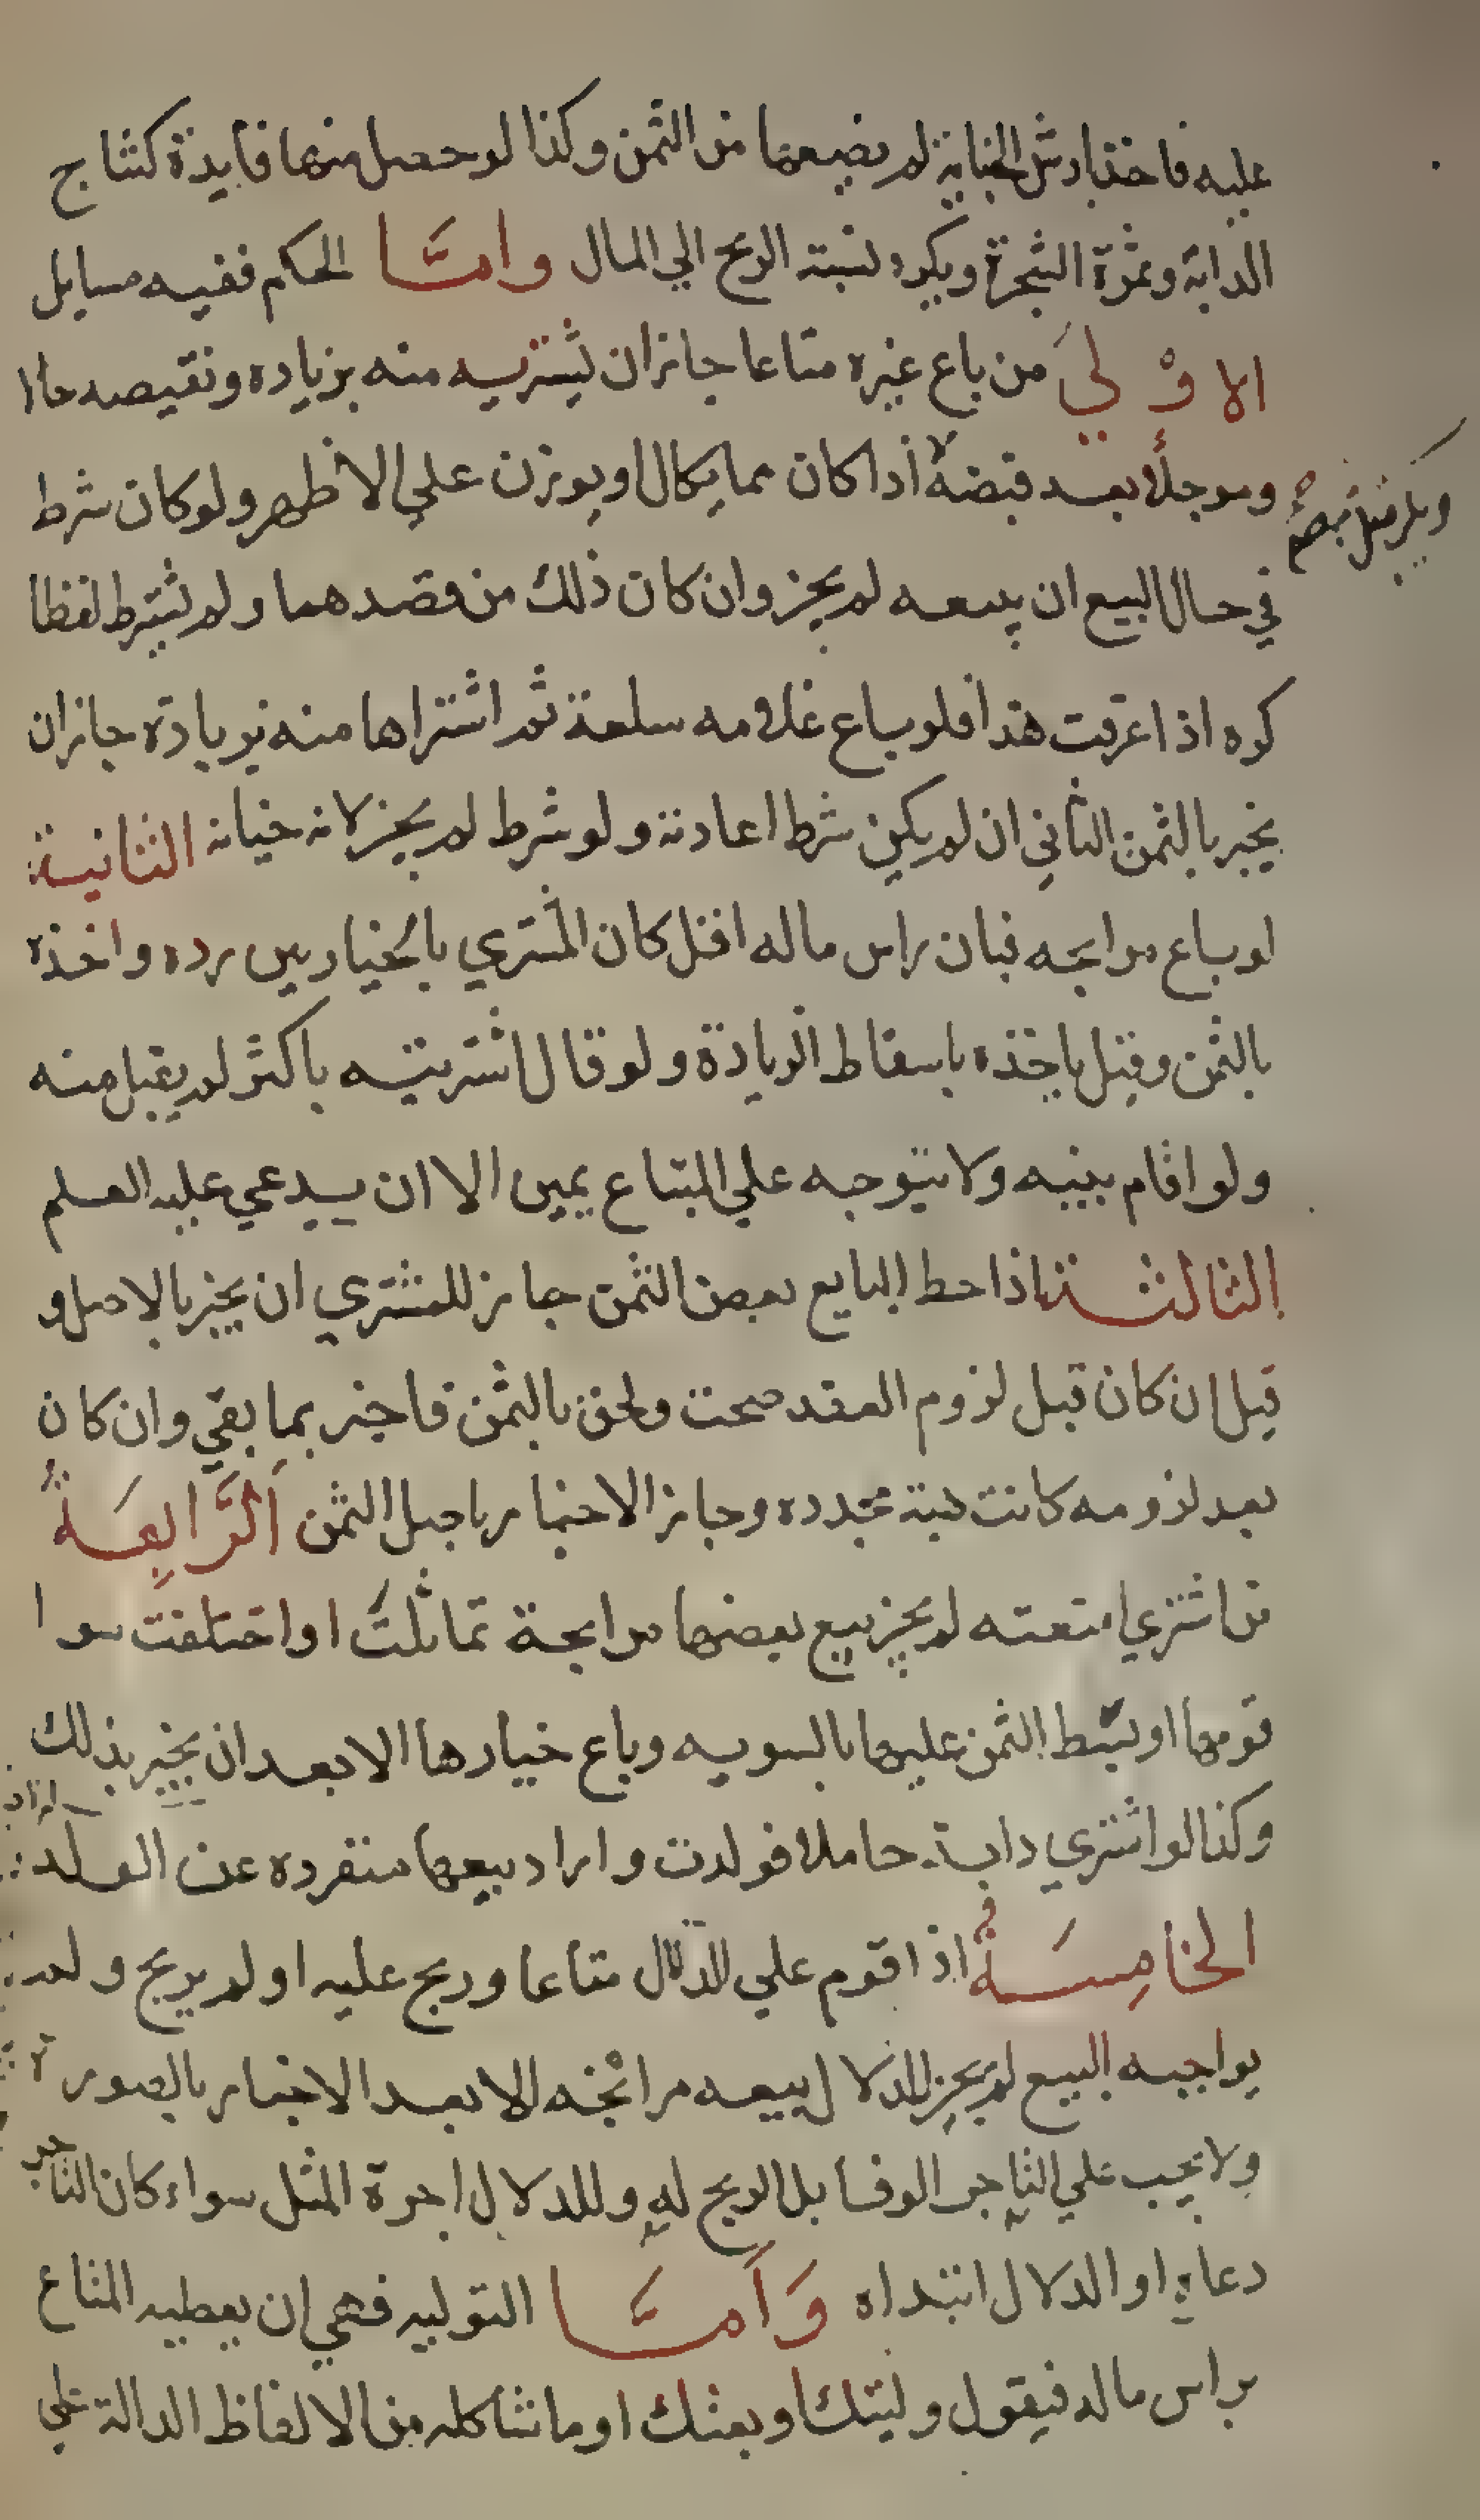 عليه فاخذ ارش الجناية لم يضعها من الثمن وكذا لو حصل منها فايدة كنتاج
الدابة وثمرة الشجرة ويكره نسبة الربح الي المال وامّا الحكم ففيه مسايل
الاوْليَ من باع غيره متاعا جاز ان يشتريه منه بزياده ونقيصه حالا
وموجلًا بعد قبضه اذا كان مما يكال او يوزن علي الاظهر ولو كان شرط
ويكره قبل قبضه
في حال البيع ان يبيعه لم يجز وان كان ذلك من قصدهما ولم يشترط لفظا
كره اذا عرفت هذا فلو باع غلامه سلعة ثم اشتراها منه بزيادة جاز ان
يخبر بالثمن الثاني ان لم يكن شرط اعادته ولو شرط لم يجز لانه خيانه الثانية
لو باع مرابحه فبان راس ماله اقل كان المشتري بالخيار بين رده واخذه
بالثمن وقيل ياخذه باسقاط الزيادة ولو قال اشتريته باكثر لم يقبل منه
ولو اقام بينه ولا يتوجه علي المبتاع يمين الا ان يدعي عليه العلم
الثالثة اذا حط البايع بعض الثمن جاز للمشتري ان يخبر بالاصل و
قيل ان كان قبل لزوم العقد صحت ولحق بالثمن فاخبر بما بقي وان كان
بعد لزومه كانت هبة مجدده وجاز الاخبار باصل الثمن اَلرَّابِعَةُ
من اشتري امتعته لم يجز بيع بعضها مرابحة تماثلت او اختلفت سوا
قومها او بسّط الثمن عليها بالسويه وباع خيارها الا بعد ان يخبر بذلك
وكذا لو اشتري دابة حاملا فولدت واراد بيعها منفرده عن الولد
الخامِسَةُ اذا قوم علي الدلال متاعا وربح عليه او لم يربح ولم
يواجبه البيع لم يجز للدلال بيعه مرابحه الا بعد الاخبار بالصورة
ولا يجب علي التاجر الوفا بل الربح له وللدلال اجرة المثل سواء كان التاجر
دعاه او الدلال ابتداه وَاَمَّا التوليه فهي ان يعطيه المتاع
براس ماله فيقول وليتك او بعتك او ما شاكله من الالفاظ الدالة علي